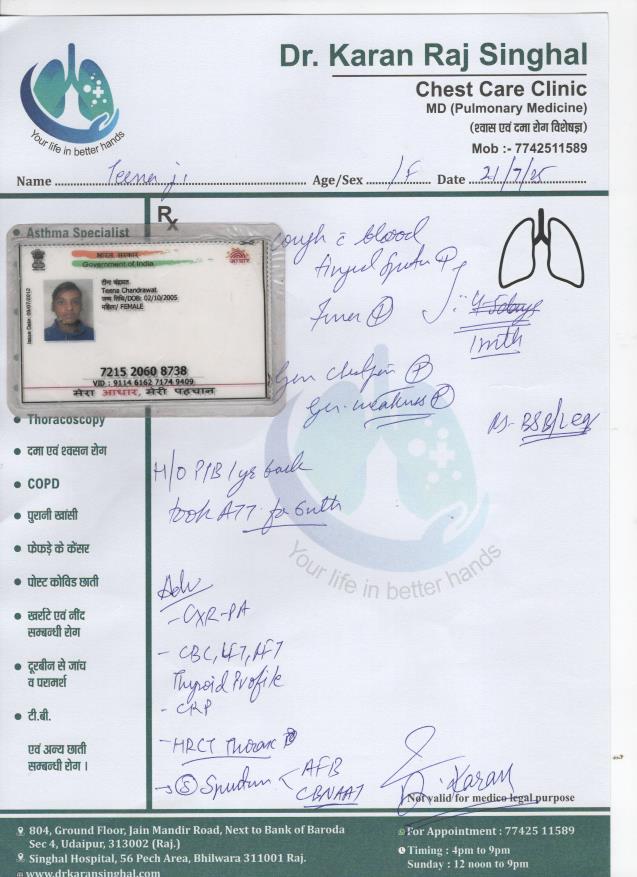 Dr. Karan Raj Singhal
Chest Care Clinic
MD (Pulmonary Medicine)
(श्वास एवं दमा रोग विशेषज्ञ)
Mob :- 7742511589
Your life in better hands
Name Teena ji Age/Sex /F Date 21/7/25
Rx
Asthma Specialist
भारत सरकार
Government of India
आधार
टीना चंद्रावत
Teena Chandrawat
जन्म तिथि/DOB: 02/10/2005
महिला/ FEMALE
Issue Date: 09/07/2012
7215 2060 8738
VID : 9114 6162 7174 9409
मेरा आधार, मेरी पहचान
cough c̄ blood
tinged sputum (P)
Fever (P)
1 mth
(P)
Gen. weakness (P)
Thoracoscopy
दमा एवं श्वसन रोग
COPD
पुरानी खांसी
फेफड़े के कैंसर
पोस्ट कोविड छाती
खर्राटे एवं नींद
सम्बन्धी रोग
दूरबीन से जांच
व परामर्श
टी.बी.
एवं अन्य छाती
सम्बन्धी रोग ।
H/O PTB 1 yr back
took ATT for 6 mth
Your life in better hands
Adv
- CXR-PA
- CBC, LFT, RFT
Thyroid Profile
- CRP
- HRCT Thorax
→ (S) Sputum < AFB
CBNAAT
Dr. Karan
Not valid for medico legal purpose
804, Ground Floor, Jain Mandir Road, Next to Bank of Baroda
Sec 4, Udaipur, 313002 (Raj.)
Singhal Hospital, 56 Pech Area, Bhilwara 311001 Raj.
www.drkaransinghal.com
For Appointment : 77425 11589
Timing : 4pm to 9pm
Sunday : 12 noon to 9pm